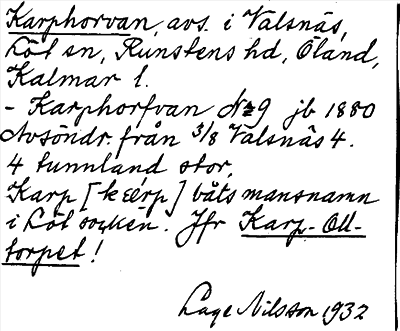 Karphorvan, avs. i Valsnäs,
Löt sn, Runstens hd, Öland,
Kalmar l.
- Karphorfvan No 9 jb 1880
Avsöndr. från 3/8 Valsnäs 4.
4 tunnland stor,
Karp [kærp] båtsmansnamn
i Löt socken. Jfr Karp-Oll-
torpet!
Lage Nilsson 1932